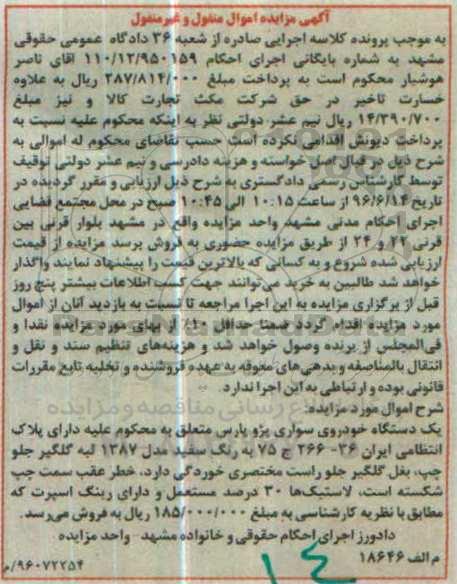 آگهی مزایده اموال منقول و غیرمنقول
به موجب پرونده کلاسه اجرایی صادره از شعبه ۳۶ دادگاه عمومی حقوقی
مشهد به شماره بایگانی اجرای احکام ۱۱۰/۱۲/۹۵۰۱۵۹ آقای ناصر
هوشیار محکوم است به پرداخت مبلغ ۲۸۷/۸۱۴/۰۰۰ ریال به علاوه
خسارت تاخیر در حق شرکت مکث تجارت کالا و نیز مبلغ
۱۴/۳۹۰/۷۰۰ ریال نیم عشر دولتی نظر به اینکه محکوم علیه نسبت به
پرداخت دیونش اقدامی نکرده است حسب تقاضای محکوم له اموالی به
شرح ذیل در قبال اصل خواسته و هزینه دادرسی و نیم عشر دولتی توقیف
توسط کارشناس رسمی دادگستری به شرح ذیل ارزیابی و مقرر گردیده در
تاریخ ۹۶/۶/۱۴ از ساعت ۱۰:۱۵ الی ۱۰:۴۵ صبح در محل مجتمع قضایی
اجرای احکام مدنی مشهد واحد مزایده واقع در مشهد بلوار قرنی بین
قرنی ۲۲ و ۲۴ از طریق مزایده حضوری به فروش برسد مزایده از قیمت
ارزیابی شده شروع و به کسانی که بالاترین قیمت را پیشنهاد نمایند واگذار
خواهد شد طالبین به خرید می‌توانند جهت کسب اطلاعات بیشتر پنج روز
قبل از برگزاری مزایده به این اجرا مراجعه تا نسبت به بازدید آنان از اموال
مورد مزایده اقدام گردد ضمنا حداقل ۱۰٪ از بهای مورد مزایده نقدا و
فی‌المجلس از برنده وصول خواهد شد و هزینه‌های تنظیم سند و نقل و
انتقال بالمناصفه و بدهی‌های معوقه به عهده فروشنده و تخلیه تابع مقررات
قانونی بوده و ارتباطی به این اجرا ندارد.
شرح اموال مورد مزایده:
یک دستگاه خودروی سواری پژو پارس متعلق به محکوم علیه دارای پلاک
انتظامی ایران ۳۶- ۲۶۶ ج ۷۵ به رنگ سفید مدل ۱۳۸۷ لبه گلگیر جلو
چپ، بغل گلگیر جلو راست مختصری خوردگی دارد، خطر عقب سمت چپ
شکسته است، لاستیک‌ها ۳۰ درصد مستعمل و دارای رینگ اسپرت که
مطابق با نظریه کارشناسی به مبلغ ۱۸۵/۰۰۰/۰۰۰ ریال به فروش می‌رسد.
دادورز اجرای احکام حقوقی و خانواده مشهد - واحد مزایده
م الف ۱۸۶۴۶
۹۶۰۷۲۲۵۴/م
۱۴